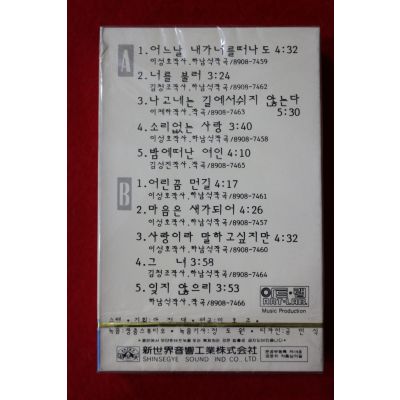 A
1. 어느날 내가너를떠나도 4:32
이성호작사.하남석작곡/8908-7459
2. 너를 불러 3:24
김정조작사.하남석작곡/8908-7462
3. 나그네는 길에서쉬지 않는다
이제하작사.작곡/8908-7463 5:30
4. 소리없는 사랑 3:40
이성호작사.하남석작곡/8908-7458
5. 밤에떠난 여인 4:10
김성진작사.작곡/8908-7465
B
1. 어린꿈 먼길 4:17
이성호작사.하남석작곡/8908-7461
2. 마음은 새가되어 4:26
이성호작사.하남석작곡/8908-7457
3. 사랑이라 말하고싶지만 4:32
이성호작사.하남석작곡/8908-7460
4. 그 너 3:58
김정조작사.하남석작곡/8908-7464
5. 잊지 않으리 3:53
하남석작사.작곡/8908-7466
ART-LABEL
Music Production
新世界音響工業株式会社
SHINSEGYE SOUND IND CO., LTD.